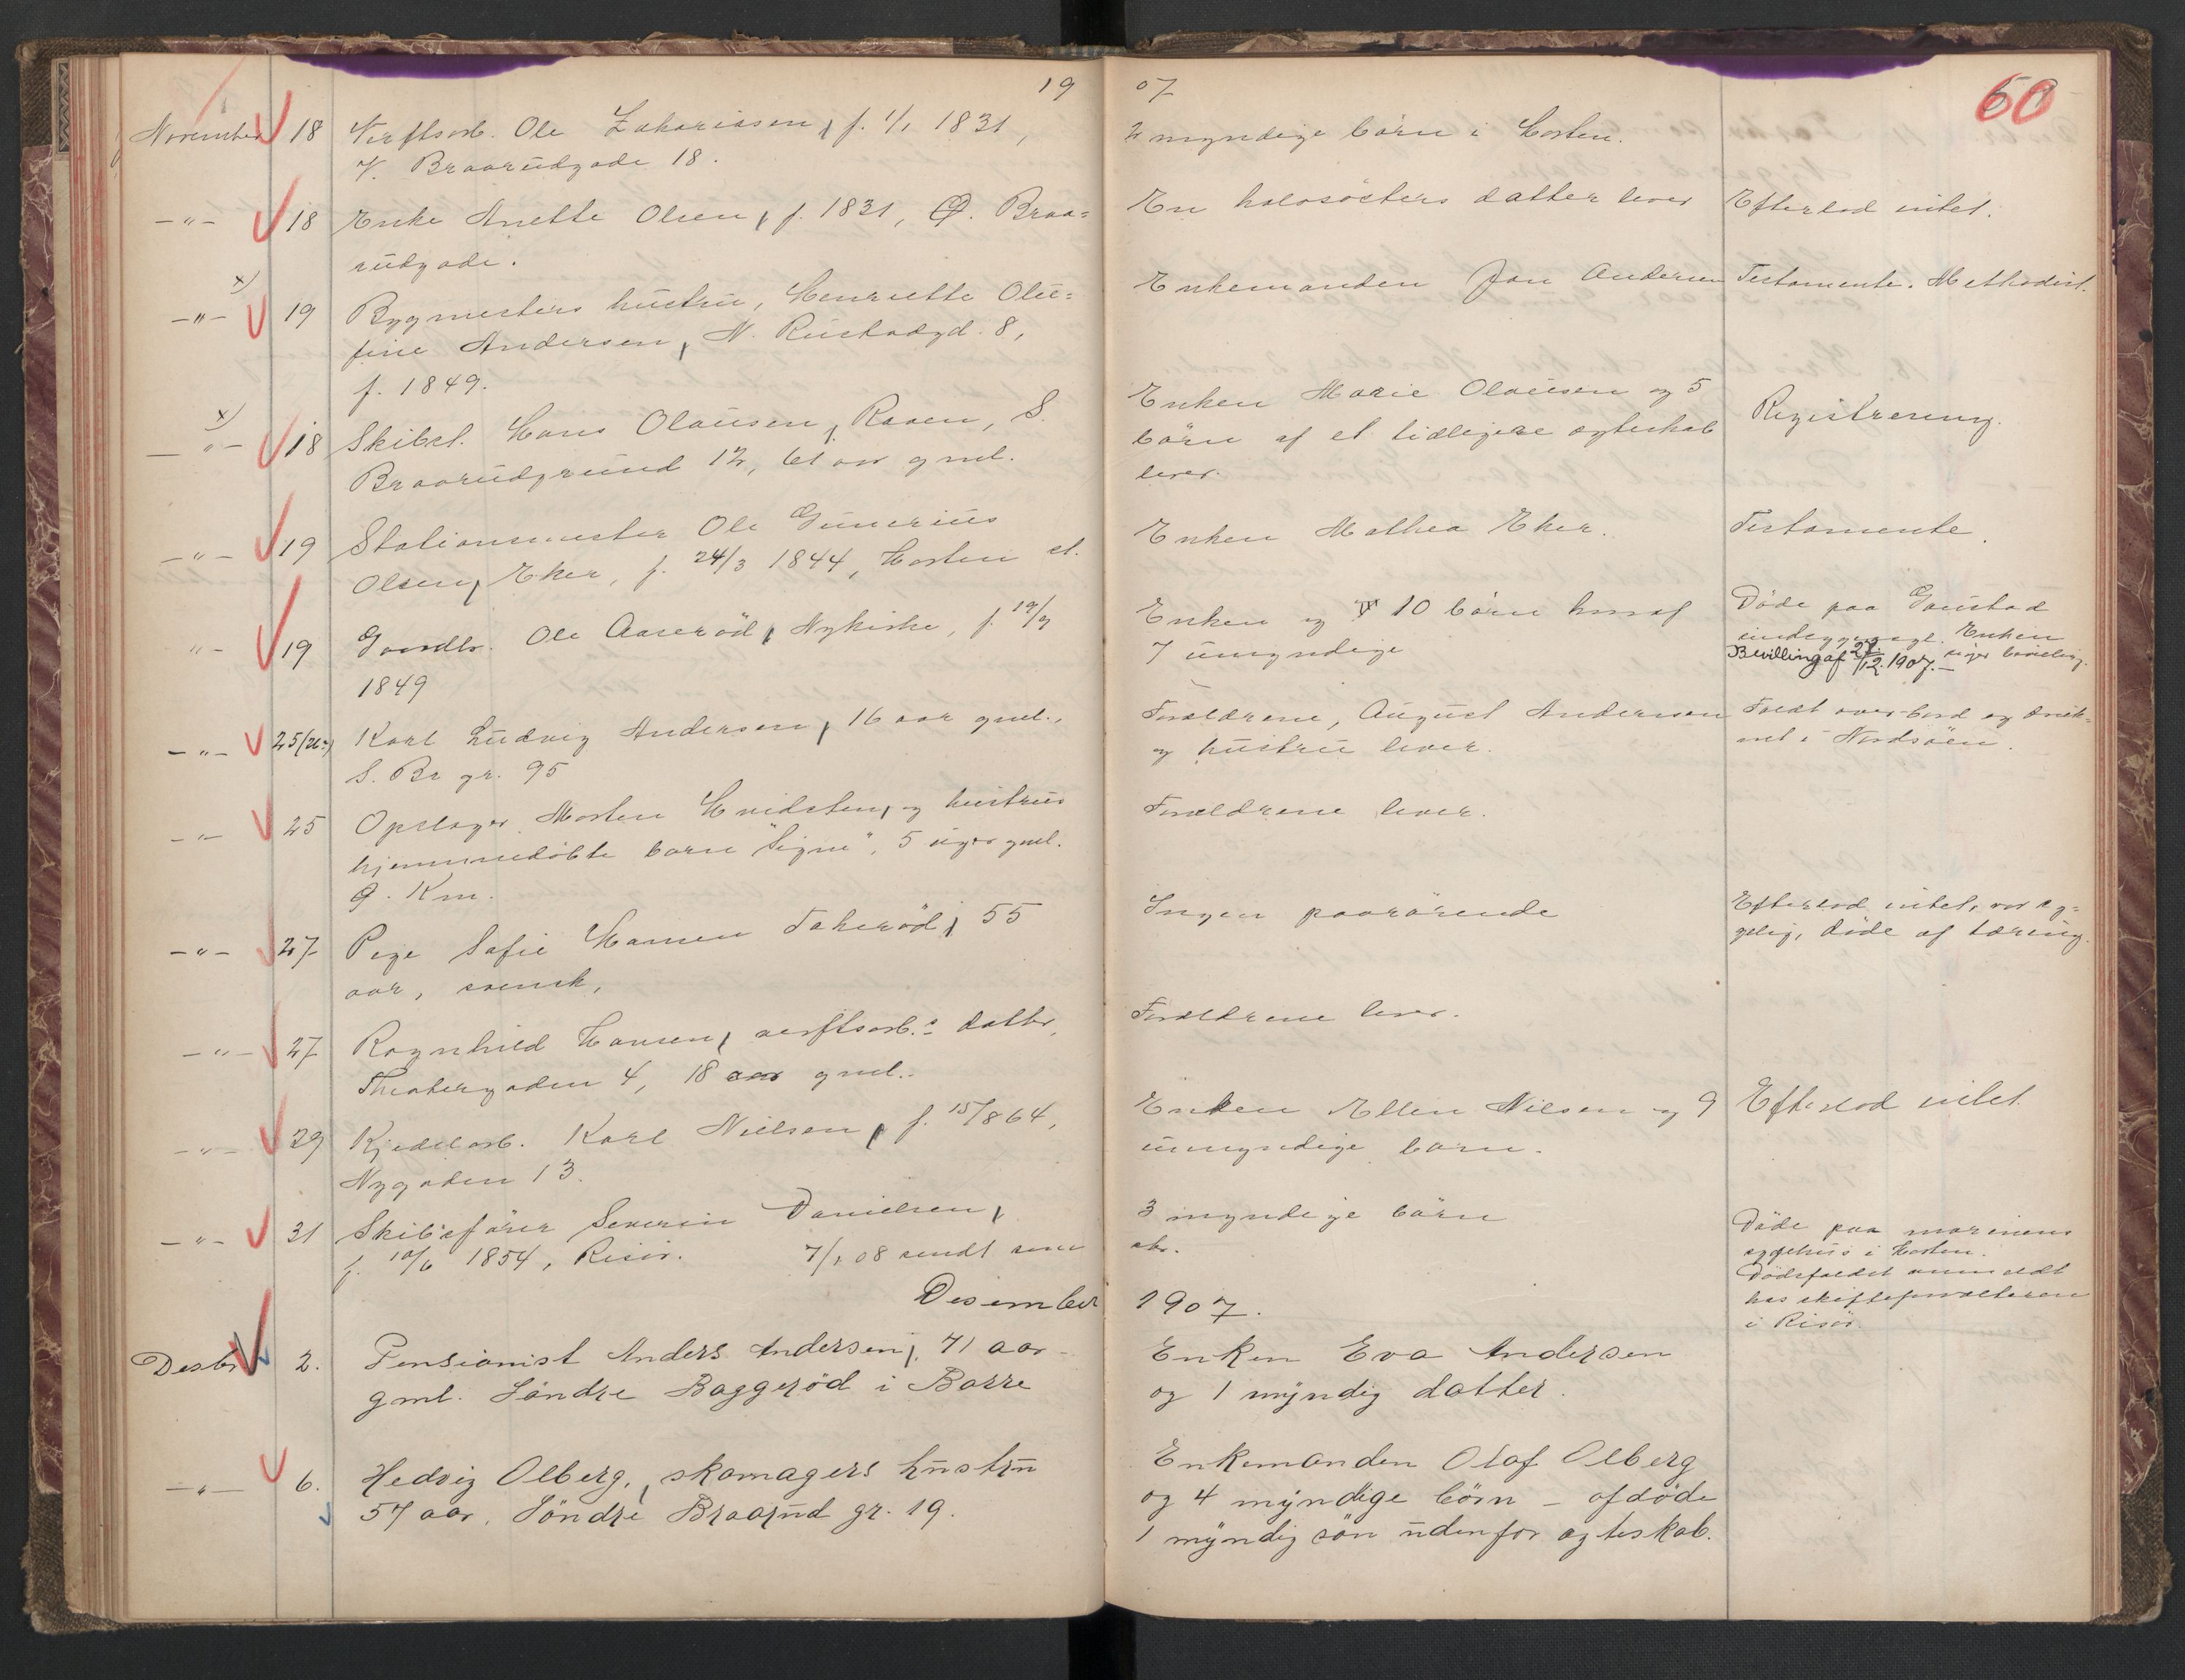 19 07
60
November 18 Verftsarb. Ole Zakariassen, f. 1/1 1831,
V. Braarudgade 18.
2 myndige börn i Horten.
-"- 18 Enke Anette Olsen, f. 1831, Ø. Braa=
rudgade.
En halvsösters datter lever
Efterlod intet.
x)
-"- 19 Bygmesters hustru, Henriette Olu=
fine Andersen, N. Rustadgd. 8,
f. 1849.
Enkemanden Jan Andersen
Testamente. Methodist.
x)
-"- 18 Skibst. Hans Olausen, Raaen, S.
Braarudgrund 12, 61 aar gml.
Enken Marie Olausen og 5
börn af et tidligere ægteskab
lever.
Registrering.
-"- 19 Stationsmester Ole Gunerius
Olsen, Eker, f. 24/3 1844, Horten st.
Enken Mathea Eker.
Testamente.
"- 19 Gaardbr. Ole Aaseröd, Nykirke, f. 19/9
1849
Enken og 10 börn hvoraf
7 umyndige
Döde paa Gaustad
sindssygeasyl. Enken
söger bevilling.
Bevilling af 27./12. 1907.-
-"- 25(26?) Karl Ludvig Andersen, 16 aar gml.,
S. Br gr. 95
Forældrene, August Andersen
og hustru lever.
Faldt over bord og druk=
net i Nordsöen.
-"- 25 Opslager Morten Hvidsten, og hustrus
hjemmedöbte barn "Signe", 5 uger gml.
9. Km.
Forældrene lever.
-"- 27 Pige Sofie Hansen Fakeröd, 55
aar, svensk,
Ingen paarörende
Efterlod intet, var sy=
gelig, döde af tæring.
-"- 27 Ragnhild Hansen, verftsarb.s datter,
Theatergaden 4, 18 aar gml.
Forældrene lever.
-"- 29 Kjedelarb. Karl Nielsen, f. 15/8 64,
Nygaden 13.
Enken Ellen Nilsen og 9
umyndige barn.
Efterlod intet.
-"- 31 Skibsförer Severin Danielsen,
f. 10/6 1854, Risör. 7/1 08 sendt
3 myndige börn
Döde paa marinens
sygehus i Horten.
Dödsfaldet anmeldt
hos skifteforvalteren
i Risör.
Desember 1907.
Desbr 2. Pensionist Anders Andersen, 71 aar
gml. Söndre Baggeröd i Borre
Enken Eva Andersen
og 1 myndig datter.
-"- 6. Hedvig Olberg, skomagers hustru
57 aar, Söndre Braarud gr. 19.
Enkemanden Olaf Olberg
og 4 myndige börn - afdöde
1 myndig sön udenfor ægteskab.